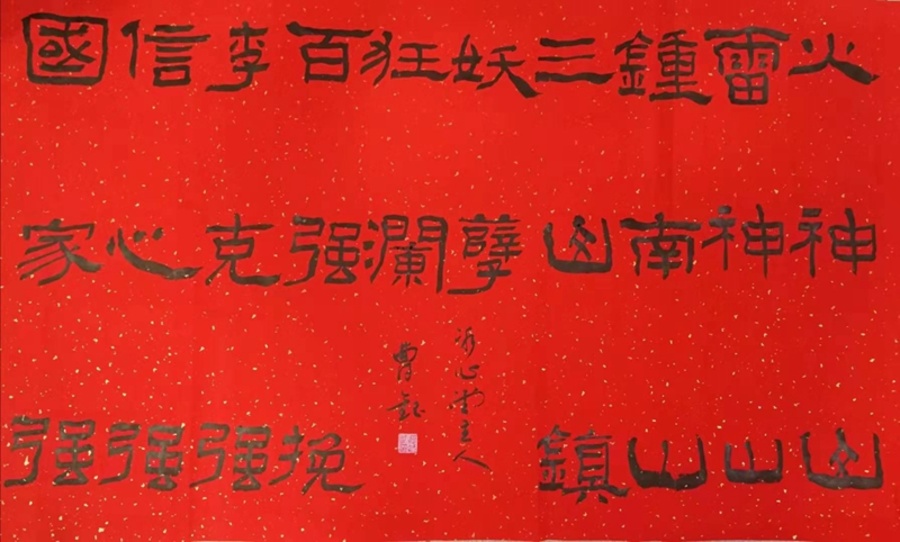 火神山
雷神山
鍾南山
三山鎮
妖孽
國家强
信心强
李克强
百强挽
狂瀾
心堂主人
曹